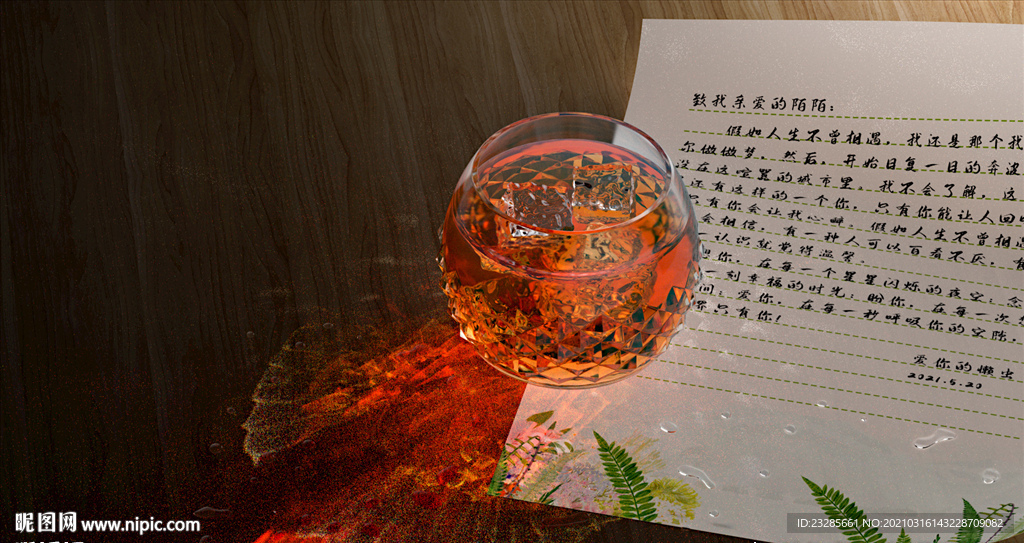 致我亲爱的陌陌:
假如人生不曾相遇,我还是那个我
尔做做梦,然后,开始日复一日的奔波
没在这喧嚣的城市里。我不会了解,这
还有这样的一个你,只有你能让人回
只有你会让我心醉。假如人生不曾相遇
会相信,有一种人可以百看不厌,有
一认识就觉得温馨
你,在每一个星星闪烁的夜空;念
一刻幸福的时光;盼你,在每一次
间;爱你,在每一秒呼吸你的空隙,
界只有你!
爱你的懒虫
2021.5.20
昵图网 www.nipic.com
ID:23285661 NO:20210316143228709082